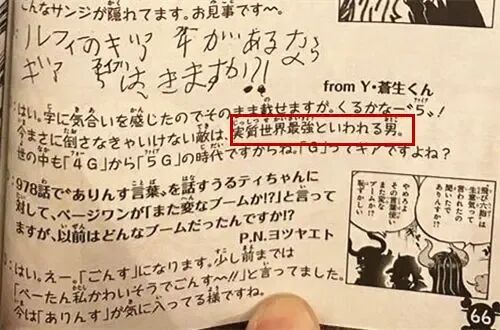 こんなサンジが隠れてます。お見事です〜。
ルフィのギア
ギア
from Y・蒼生くん
はい。字に気合いを感じたのでそのまま載せますが。くるかなー“5”！
今まさに倒さなきゃいけない敵は、実質世界最強といわれる男。
世の中も「4G」から「5G」の時代ですからね。「G」ってギアですよね？
978話で“ありんす言葉”を話すうるティちゃんに
対して、ページワンが「また変なブームか!?」と言って
ますが、以前はどんなブームだったんですか!?
P.N.ヨツヤエト
はい。えー。「ごんす」になります。少し前までは
「ぺーたん私かわいそうでごんす〜!!」と言ってました。
今は「ありんす」が気に入ってる様ですね。
飛び六胞は
生意気って
言われたの
聞いたで
ありんすか!?
やめろよ
その言葉使い
また変な
ブームか!?
恥ずかしい
66